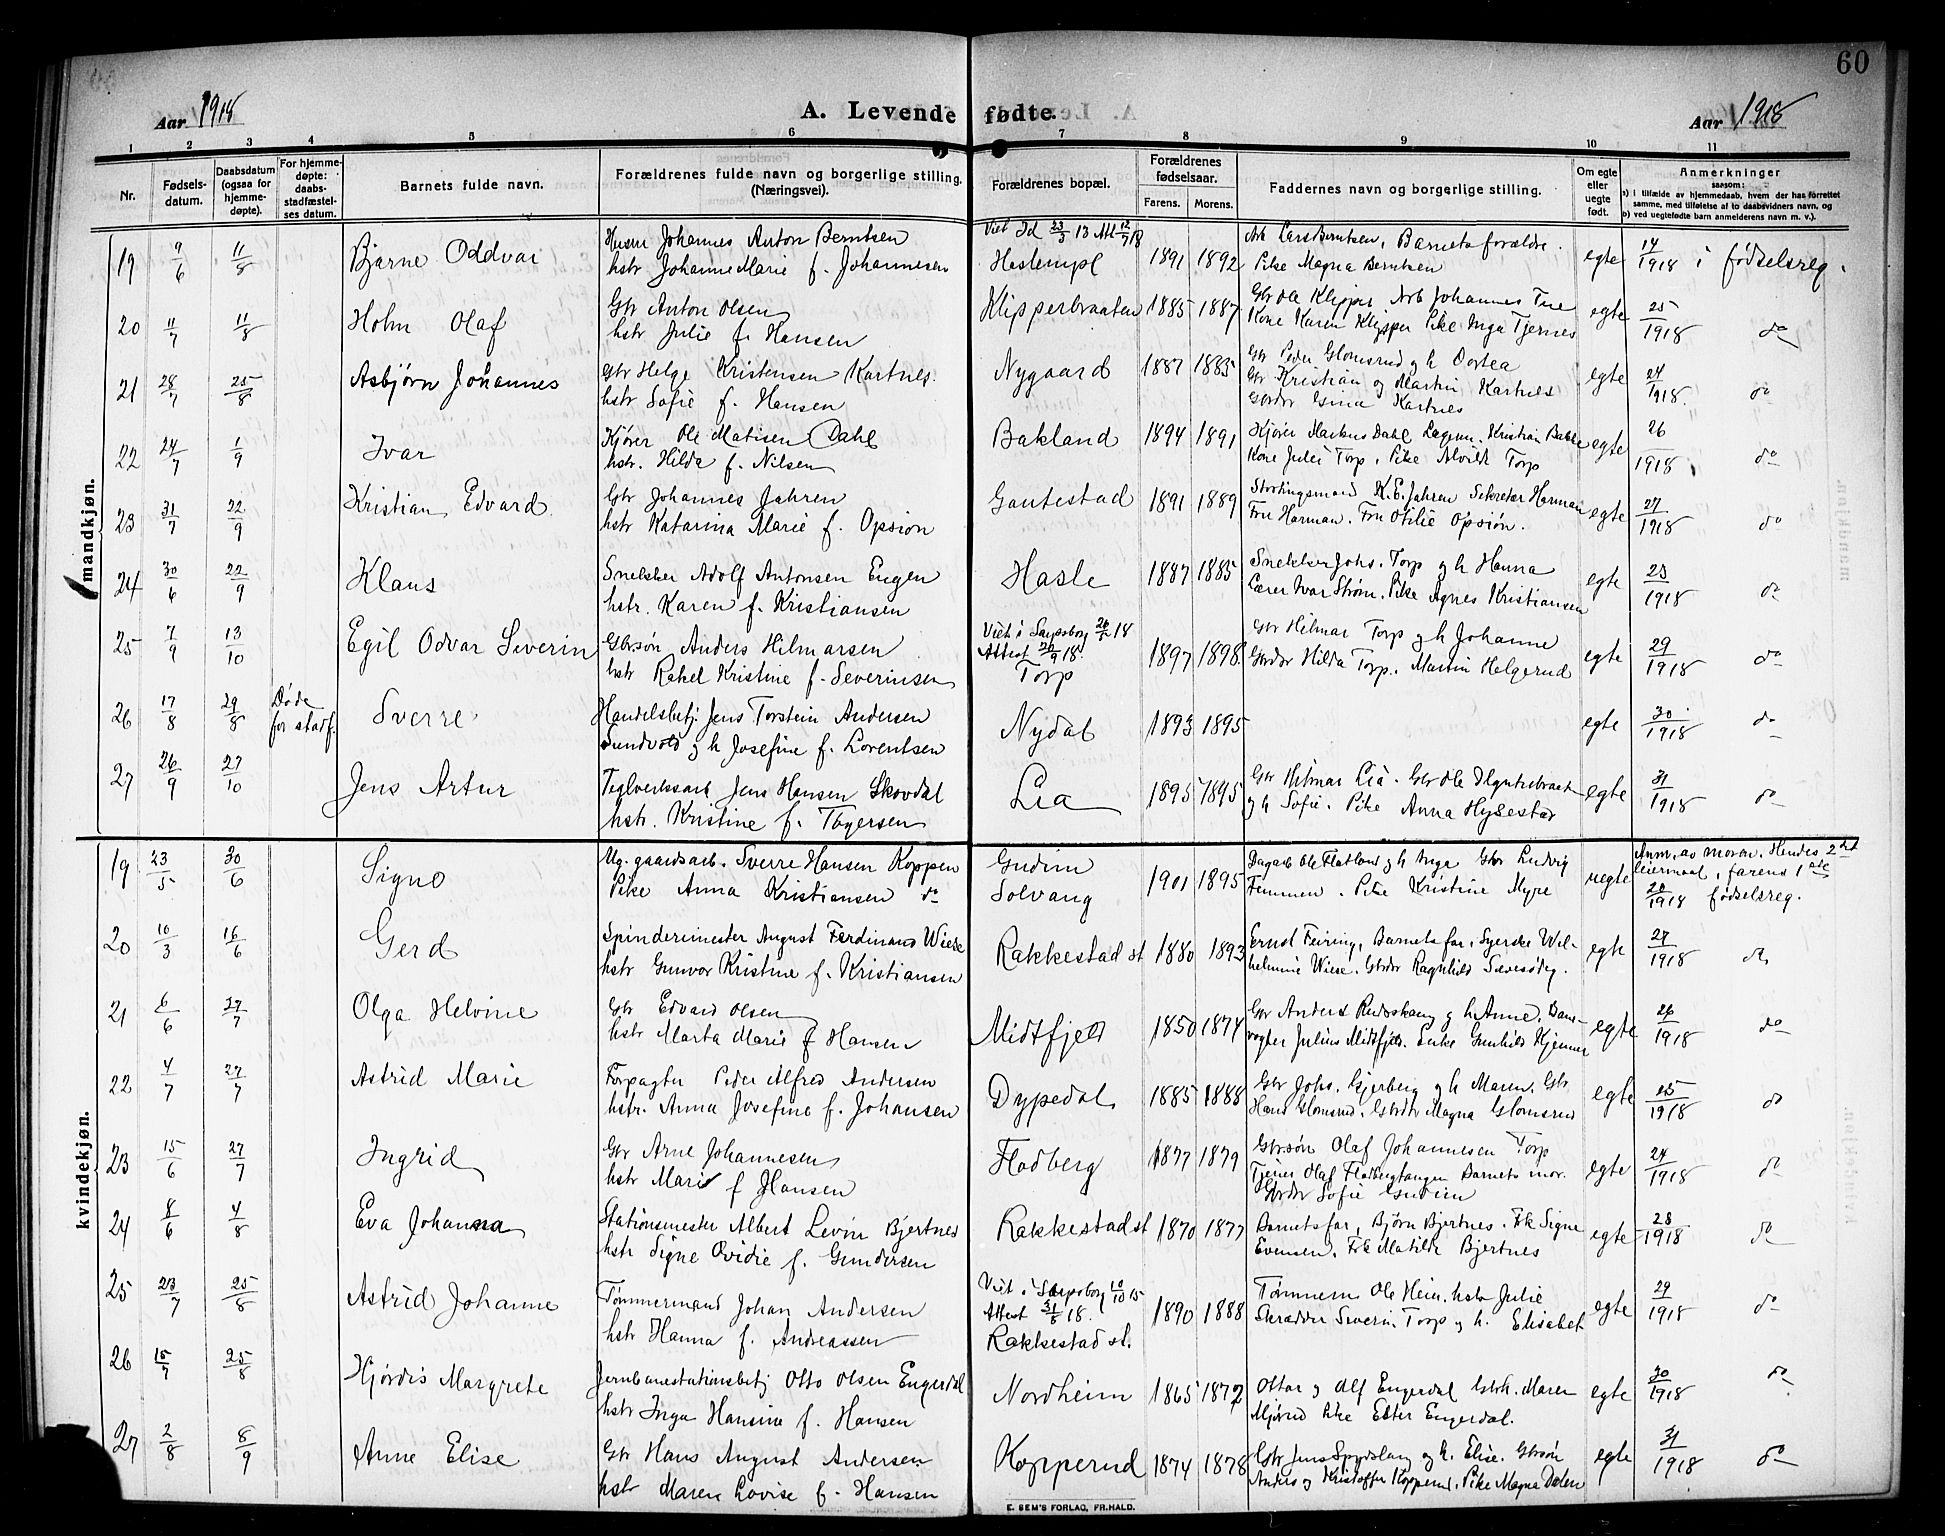 60
Aar 1918 A. Levende fødte. Aar 1918
1 2 3 4 5 6 7 8 9 10 11
Nr. Fødsels-datum. Daabsdatum (ogsaa for hjemme-døpte). For hjemme-døpte: daabs-stadfæstel-ses datum. Barnets fulde navn. Forældrenes fulde navn og borgerlige stilling. (Næringsvei). Forældrenes bopæl. Forældrenes fødselsaar. Farens. Morens. Faddernes navn og borgerlige stilling. Om egte eller uegte født. Anmerkninger saasom: a) i tilfælde av hjemmedaab, hvem der has forrettet samme, med tilføielse af to daabsvidners navn, og b) ved uegtefødt barn anmelderens navn m. v.).
mandkjøn.
19 9/6 11/8 Bjarne Oddvar Husm Johannes Anton Berntsen Viet Id 23/3 13 Att 12/7 18 Ark Lars Berntsen, Barnets forældre.
hstr Johanne Marie f. Johannesen Haslempl 1891 1892 Pike Magna Berntsen egte 14/1918 i fødselsreg.
20 11/7 11/8 Holm Olaf Gbr Anton Olsen Klipperbraaten 1885 1887 Gbr Ole Klipper Arb Johannes Tue egte 25/1918 do
hstr Julie f. Hansen Kone Karen Klipper Pike Inga Tjernes
21 28/7 25/8 Asbjørn Johannes Gbr Helge Kristensen Kartnes. Nygaard 1887 1883 Gbr Peder Glomsrud og h Dortea egte 24/1918 do
hstr Sofie f. Hansen Gbr Kristian og Martin Kartnes
Gbrdr Gina Kartnes
22 24/7 1/9 Ivar Kjører Ole Matisen Dahl Bakland 1894 1891 Kjører Markus Dahl Kristian Bakke egte 26/1918 do
hstr. Hilda f. Nilsen Kone Julie Torp, Pike Alvilde Torp
23 31/7 22/9 Kristian Edvard Gbr Johannes Jahren Gautestad 1891 1889 Stortingsmand K.E. Jahren Sekretær Harman egte 27/1918 do
hstr Katarina Marie f. Opsion Fru Harman. Fru Otilie Opsion.
24 30/6 22/9 Klaus Snekker Adolf Antonsen Eugen Hasle 1887 1885 Snekker Johs. Torp og h Hanna egte 23/1918 do
hstr. Karen f. Kristiansen Lærer Ivar Strøm. Pike Agnes Kristiansen
25 7/9 13/10 Egil Odvar Severin Gbrsøn Anders Hilmarsen Viet i Sarpsborg 18 1897 1898 Gbr Hilmar Torp og h Johanne egte 29/1918 do
hstr Rakel Kristine f. Severinsen Attest 18. Torp Gbrdr Hilda Torp. Martin Helgerud
26 17/8 29/8 Døde før stadf. Sverre Handelsbetj. Jens Torstein Andersen Nydal 1893 1895 egte 30/1918 do
Sundvold og h Josefine f. Lorentsen
27 26/9 27/10 Jens Artur Teglverksarb Jens Hansen Skovdal Lia 1895 1895 Gbr Hilmar Lia. Gbr Ole egte 31/1918 do
hstr. Kristine f. Tøgersen og h Sofie. Pike Anna Hysestad
kvindekjøn.
19 23/5 30/6 Signo Ug. gaardsarb. Sverre Hansen Koppen Gudim 1901 1895 Dagarb Ole Flatland og h Inga Gbr Ludvig uegte Anm. av moren. Hendes 2det
Pike Anna Kristiansen do Solvang Femmen. Pike Kristine Myre leiermaal, farens 1ste
20/1918 fødselsreg.
20 10/3 16/6 Gerd Spindemester August Ferdinand Wiese Rakkestad st 1880 1893 Ernst Feiring, Barnets far, Syerske Wil- egte 27/1918 do
hstr Gunvor Kristine f. Kristiansen helmine Wiese. Gbrdr Ragnhild Sævesødeg.
21 6/6 27/7 Olga Helvine Gbr Edvard Olsen Midtfjeld 1850 1874 Gbr Anders Rudskaug og h Anne. Ban- egte 26/1918 do
hstr Marta Marie f Hansen vogter Julius Midtfjeld. Enke Gunhild Kjenner
22 4/7 27/7 Astrid Marie Forpagter Peder Alfred Andersen Dypedal 1885 1888 Gbr Johs. Gjerberg og h Maren. Gbr egte 25/1918 do
hstr. Anna Josefine f. Johansen Hans Glomsrud. Gbrdtr Magna Glomsrud
23 15/6 27/7 Ingrid Gbr Arne Johannesen Flodberg 1877 1879 Gbrsøn Olaf Johannesen Torp egte 24/1918 do
hstr Marie f Hansen Tjener Olaf Flodbergtangen Barnets mor.
Gbrdr Sofie Gudim
24 8/6 4/8 Eva Johanna Stationsmester Albert Levin Bjertnes Rakkestad st 1870 1877 Barnets far, Bjørn Bjertnes. Frk Signe egte 28/1918 do
hstr Signe Ovidie f. Gundersen Evensen. Frk Matilde Bjertnes
25 23/7 25/8 Astrid Johanne Tømmermand Johan Andersen Viet i Sarpsborg 10/10 15 1890 1888 Tømmerm Ole Heim. hstr Julie egte 29/1918 do
hstr Hanna f. Andreassen Attest 31/8 18. Rakkestad st. Skrædder Severin Torp og h. Elisabet
26 15/7 25/8 Hjørdis Margrete Jernbanestationsbetj Otto Olsen Engerdal Nordheim 1865 1872 Ottar og Alf Engerdal Gbrk. Maren egte 30/1918 do
hstr Inga Hansine f. Hansen Mjørud Pike Ester Engerdal.
27 2/8 8/9 Anne Elise Gbr Hans August Andersen Kopperud 1874 1878 Gbr Jens Spydslaug og h. Elise. Gbrsøn egte 31/1918 do
hstr Maren Lovise f. Hansen Anders og Kristoffer Kopperud, Pike Magna Dalen
E. SEM'S FORLAG, FR.HALD.